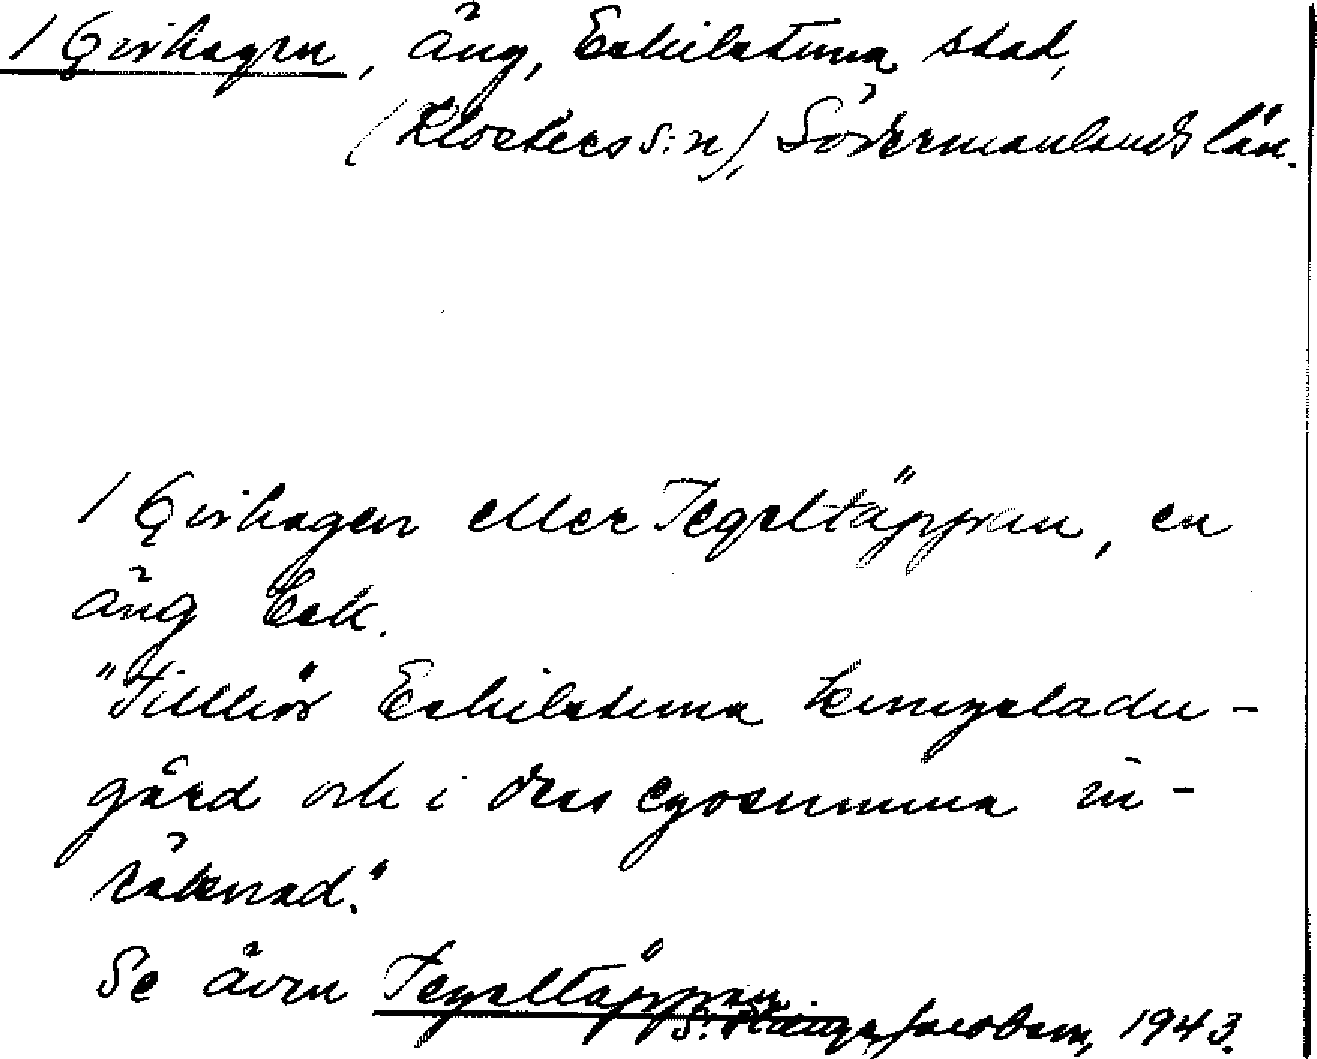 / Qvihagen, äng, Eskilstuna stad,
(Klosters s:n), Södermanlands län.
/ Qvihagen eller Tegeltäppan, en
äng Esk.
"Tillhör Eskilstuna kungsladu-
gård och i dess egosumma in-
räknad."
Se även Tegeltäppan.
S. Jacobson, 1943.